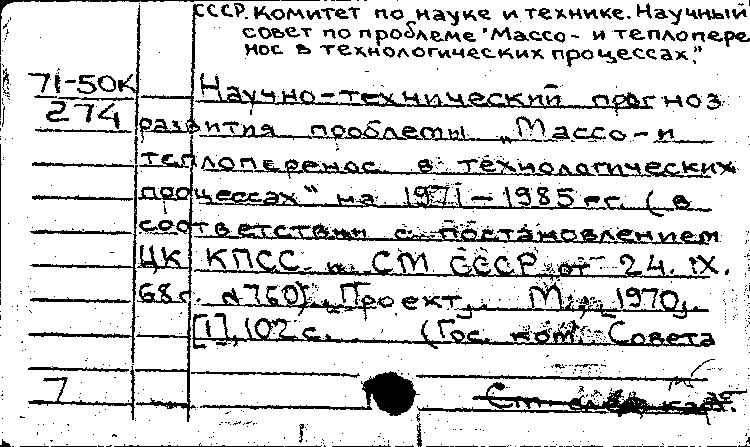 СССР. Комитет по науке и технике. Научный
совет по проблеме "Массо- и теплопере
нос в технологических процессах."
71-50К
274
Научно-технический прогноз
развития проблемы „Массо-и
теплоперенос в технологических
процессах" на 1971-1985 гг. (в
соответствии с постановлением
ЦК КПСС и СМ СССР от 24. IX.
68 г. №760). Проект. М., 1970.
[1], 102 с. (Гос. ком. Совета
7
См. след. карт.